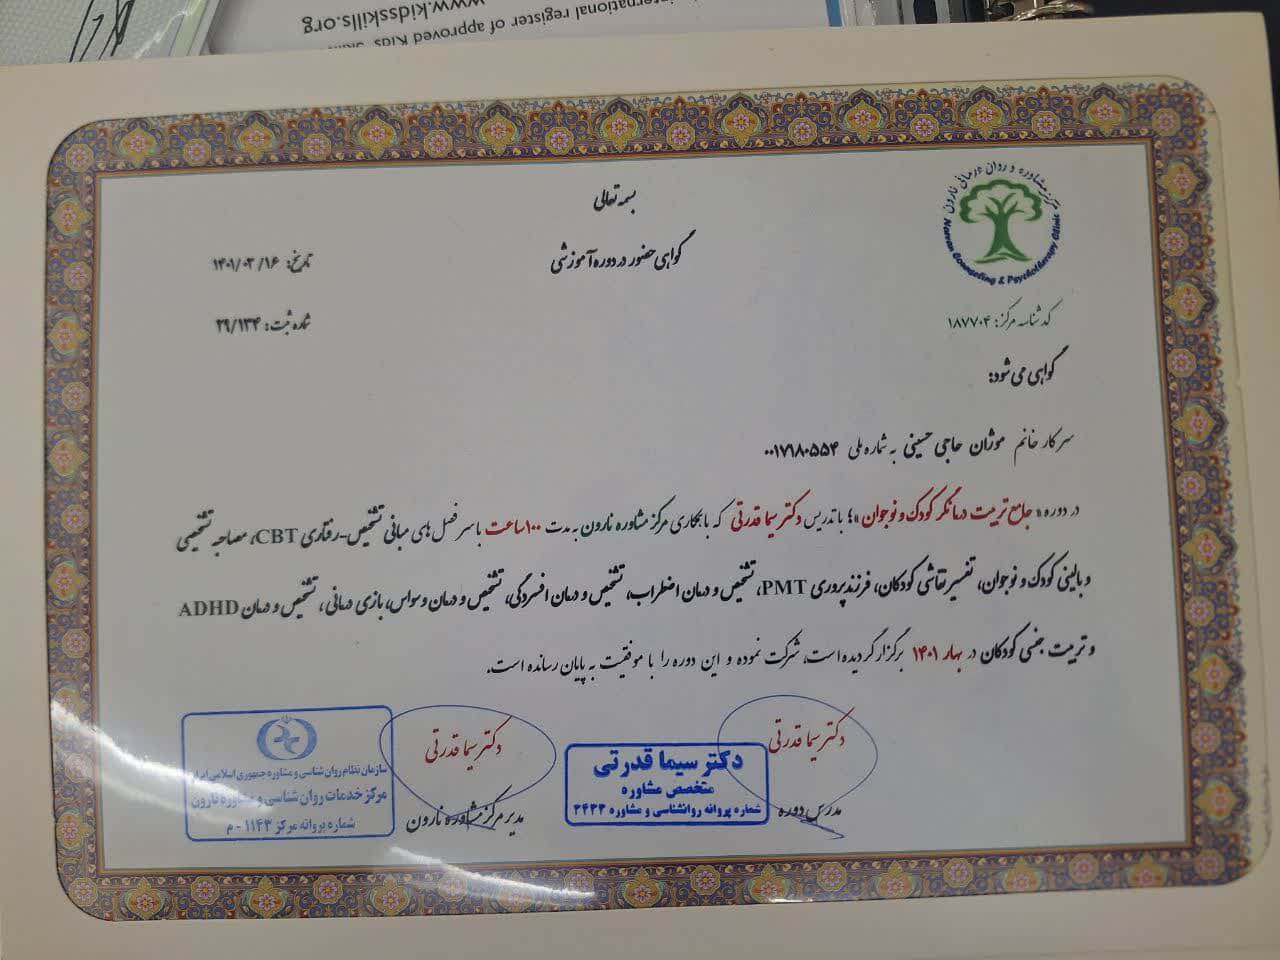 www.kidsskills.org
international register of approved Kids' Skills
بسمه تعالی
گواهی حضور در دوره آموزشی
مرکز مشاوره و روان درمانی نارون
Narvan Counseling & Psychotherapy Clinic
تاریخ: ۱۴۰۱/۰۳/۱۶
شماره ثبت: ۲۹/۱۳۴
کد شناسه مرکز: ۱۸۷۷۰۴
گواهی می شود:
سرکار خانم موژان حاجی حسینی به شماره ملی ۰۰۱۷۱۸۰۵۵۴
در دوره «جامع تربیت درمانگر کودک و نوجوان»؛ با تدریس دکتر سیما قدرتی که با همکاری مرکز مشاوره نارون به مدت ۱۰۰ ساعت با سرفصل های مبانی تشخیص-رفتاری CBT، مصاحبه تشخیصی
و بالینی کودک و نوجوان، تفسیر نقاشی کودکان، فرزندپروری PMT، تشخیص و درمان اضطراب، تشخیص و درمان افسردگی، تشخیص و درمان وسواس، بازی درمانی، تشخیص و درمان ADHD
و تربیت جنسی کودکان در بهار ۱۴۰۱ برگزار گردیده است، شرکت نموده و این دوره را با موفقیت به پایان رسانده است.
دکتر سیما قدرتی
مدرس دوره
دکتر سیما قدرتی
متخصص مشاوره
شماره پروانه روانشناسی و مشاوره ۳۴۳۳
دکتر سیما قدرتی
مدیر مرکز مشاوره نارون
سازمان نظام روان شناسی و مشاوره جمهوری اسلامی ایران
مرکز خدمات روان شناسی و مشاوره نارون
شماره پروانه مرکز ۱۱۴۳ - م